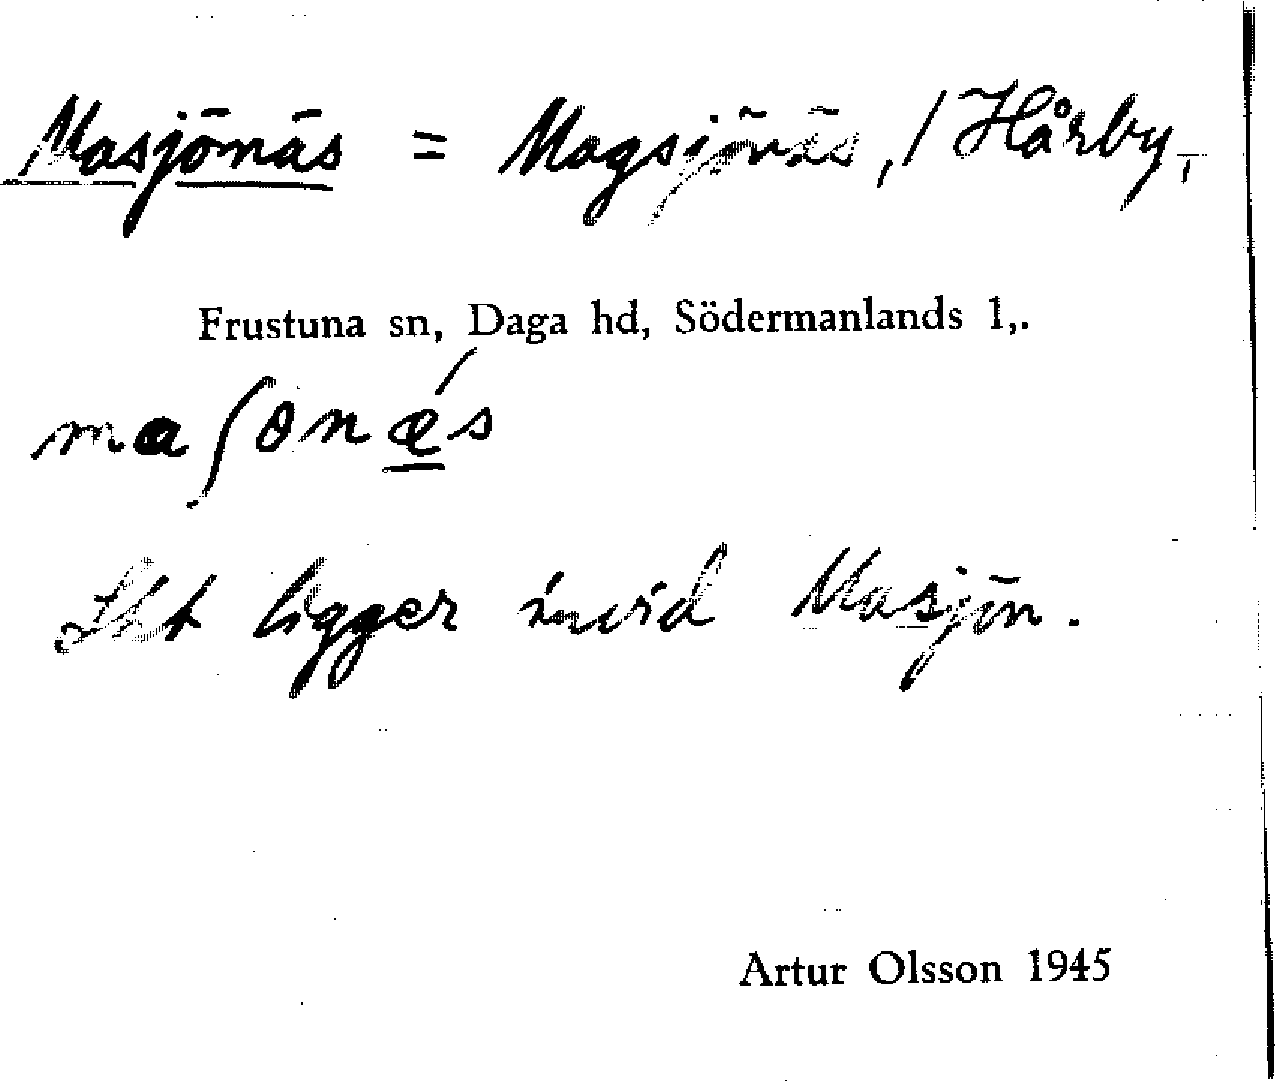 Masjönäs = Magsjönäs, / Hårby,
Frustuna sn, Daga hd, Södermanlands l,.
maʃɵnǽs
Det ligger invid Masjön.
Artur Olsson 1945